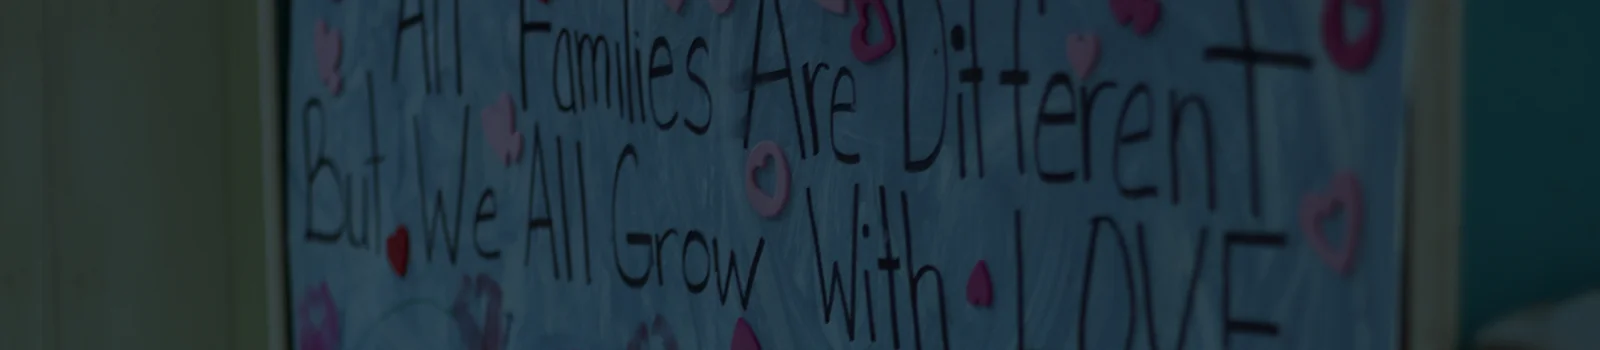 All Families Are Different
But We All Grow With LOVE